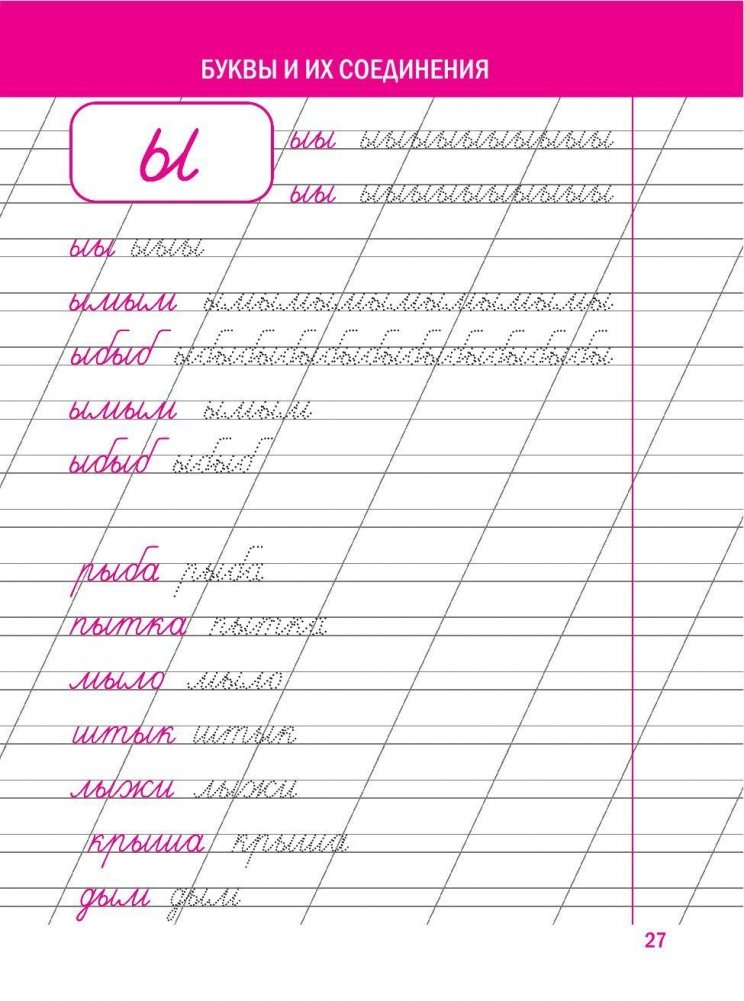 БУКВЫ И ИХ СОЕДИНЕНИЯ
ы
ыы ыыыыыыыыыы
ыы ыыыыыыыыыы
ыы ыыы
ымым ымымымымымымымы
ыбыб ыбыбыбыбыбыбыбыбыбыб
ымым ымым
ыбыб ыбыб
рыба рыба
пытка пытка
мыло мыло
штык штык
лыжи лыжи
крыша крыша
дым дым
27